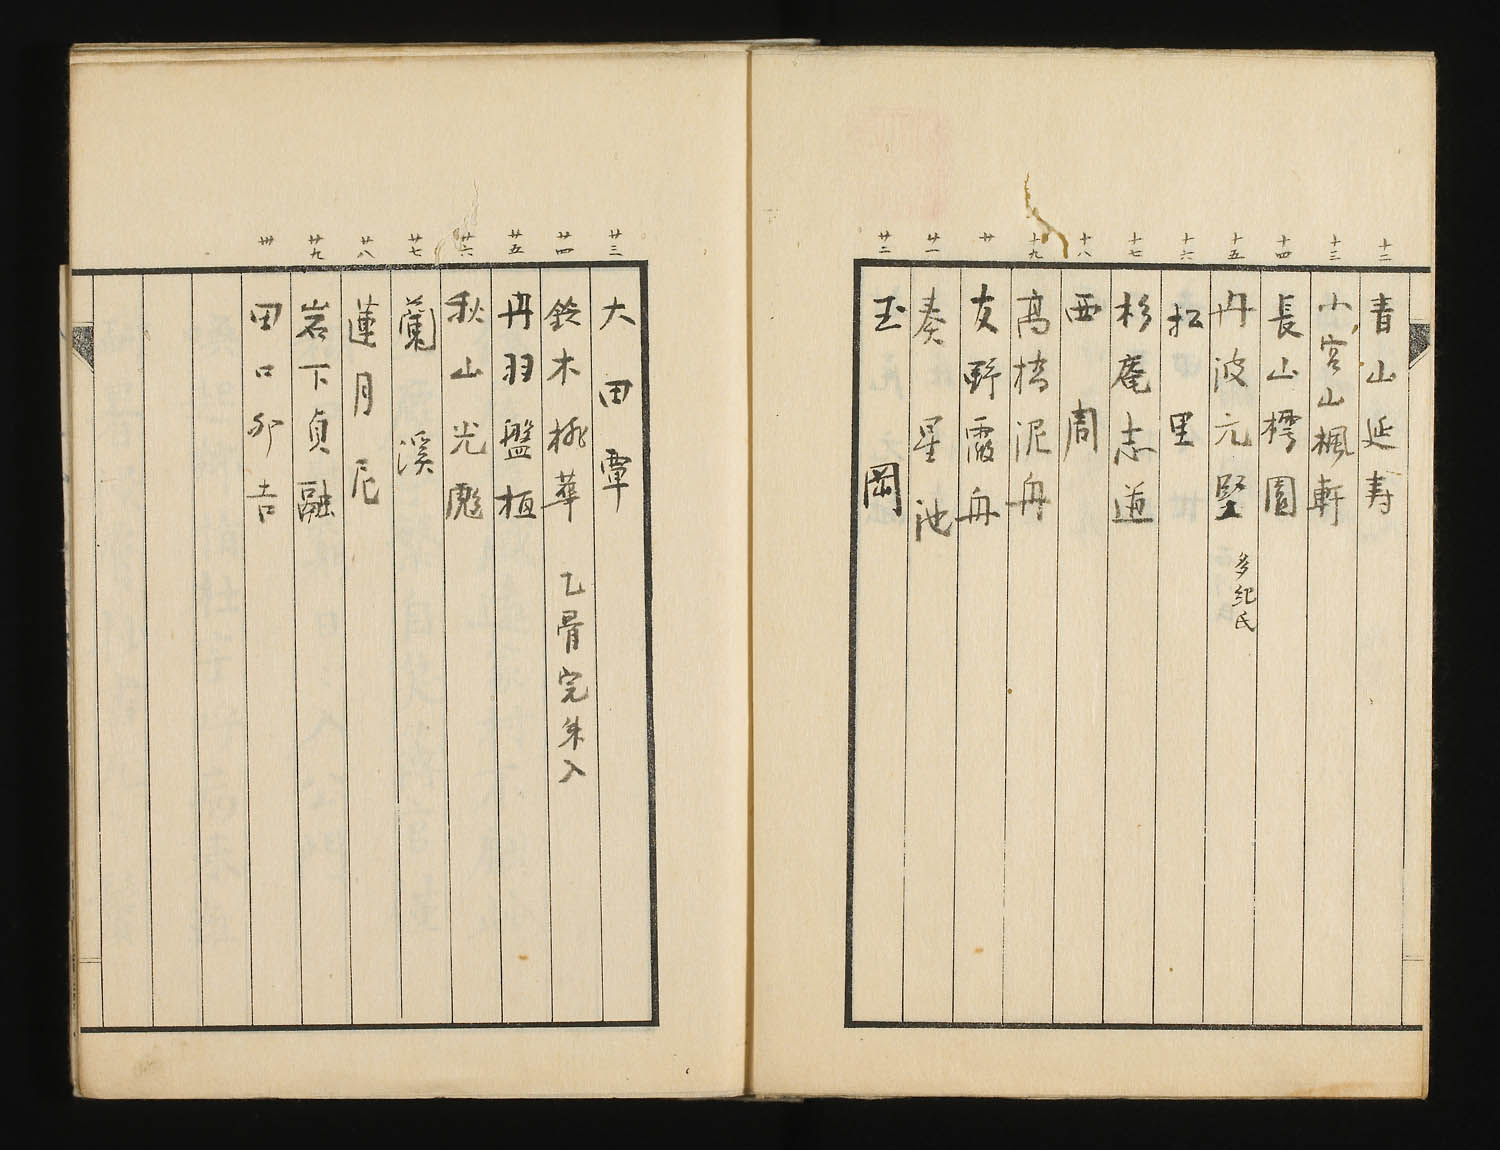 十二 青山延寿
十三 小宮山楓軒
十四 長山樗園
十五 丹波元堅 多紀氏
十六 松里
十七 杉庵志道
十八 西周
十九 高橋泥舟
廿 友野霞舟
廿一 秦星池
廿二 玉岡
廿三 大田覃
廿四 鈴木桃華 乙骨完朱入
廿五 丹羽盤桓
廿六 秋山光彪
廿七 蘭溪
廿八 蓮月尼
廿九 岩下貞融
卅 田口卯吉